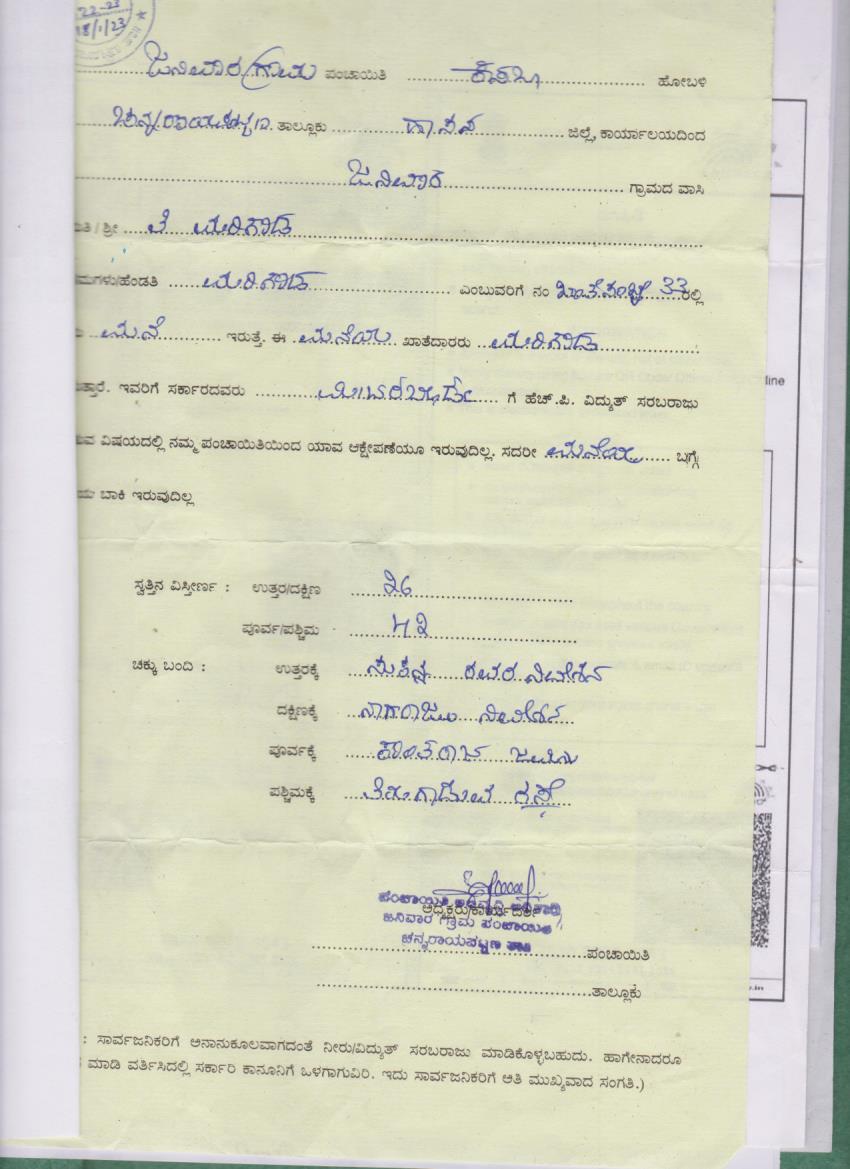 22-23
18/1/23
ಜನಿವಾರ ಗ್ರಾಮ ಪಂಚಾಯಿತಿ ಕಸಬಾ ಹೋಬಳಿ
ಚನ್ನರಾಯಪಟ್ಟಣ ತಾಲ್ಲೂಕು ಹಾಸನ ಜಿಲ್ಲೆ, ಕಾರ್ಯಾಲಯದಿಂದ
ಜನಿವಾರ ಗ್ರಾಮದ ವಾಸಿ
/ ಶ್ರೀ
ಮಗಳು/ಹೆಂಡತಿ ಮರಿಗೌಡ ಎಂಬುವರಿಗೆ ನಂ 33 ರಲ್ಲಿ
ಮನೆ ಇರುತ್ತೆ. ಈ ಮನೆಯ ಖಾತೆದಾರರು ಮರಿಗೌಡ
ಇವರಿಗೆ ಸರ್ಕಾರದವರು ಗೆ ಹೆಚ್.ಪಿ. ವಿದ್ಯುತ್ ಸರಬರಾಜು
ವಿಷಯದಲ್ಲಿ ನಮ್ಮ ಪಂಚಾಯಿತಿಯಿಂದ ಯಾವ ಆಕ್ಷೇಪಣೆಯೂ ಇರುವುದಿಲ್ಲ. ಸದರೀ ಮನೆಯ ಬಗ್ಗೆ
ಬಾಕಿ ಇರುವುದಿಲ್ಲ
ಸ್ವತ್ತಿನ ವಿಸ್ತೀರ್ಣ : ಉತ್ತರ/ದಕ್ಷಿಣ ೨೬
ಪೂರ್ವ/ಪಶ್ಚಿಮ ೪೨
ಚಕ್ಕು ಬಂದಿ : ಉತ್ತರಕ್ಕೆ ರವರ ನಿವೇಶನ
ದಕ್ಷಿಣಕ್ಕೆ ನಾಗರಾಜು ನಿವೇಶನ
ಪೂರ್ವಕ್ಕೆ ಕಾಂತರಾಜ ಜಮೀನು
ಪಶ್ಚಿಮಕ್ಕೆ ರಸ್ತೆ
ಪಂಚಾಯಿತಿ ಅಭಿವೃದ್ಧಿ ಅಧಿಕಾರಿ
ಅಧ್ಯಕ್ಷರು/ಕಾರ್ಯದರ್ಶಿ
ಜನಿವಾರ ಗ್ರಾಮ ಪಂಚಾಯಿತಿ
ಚನ್ನರಾಯಪಟ್ಟಣ ತಾ||
ಪಂಚಾಯಿತಿ
ತಾಲ್ಲೂಕು
: ಸಾರ್ವಜನಿಕರಿಗೆ ಅನಾನುಕೂಲವಾಗದಂತೆ ನೀರು/ವಿದ್ಯುತ್ ಸರಬರಾಜು ಮಾಡಿಕೊಳ್ಳಬಹುದು. ಹಾಗೇನಾದರೂ
ಮಾಡಿ ವರ್ತಿಸಿದಲ್ಲಿ ಸರ್ಕಾರಿ ಕಾನೂನಿಗೆ ಒಳಗಾಗುವಿರಿ. ಇದು ಸಾರ್ವಜನಿಕರಿಗೆ ಅತಿ ಮುಖ್ಯವಾದ ಸಂಗತಿ.)